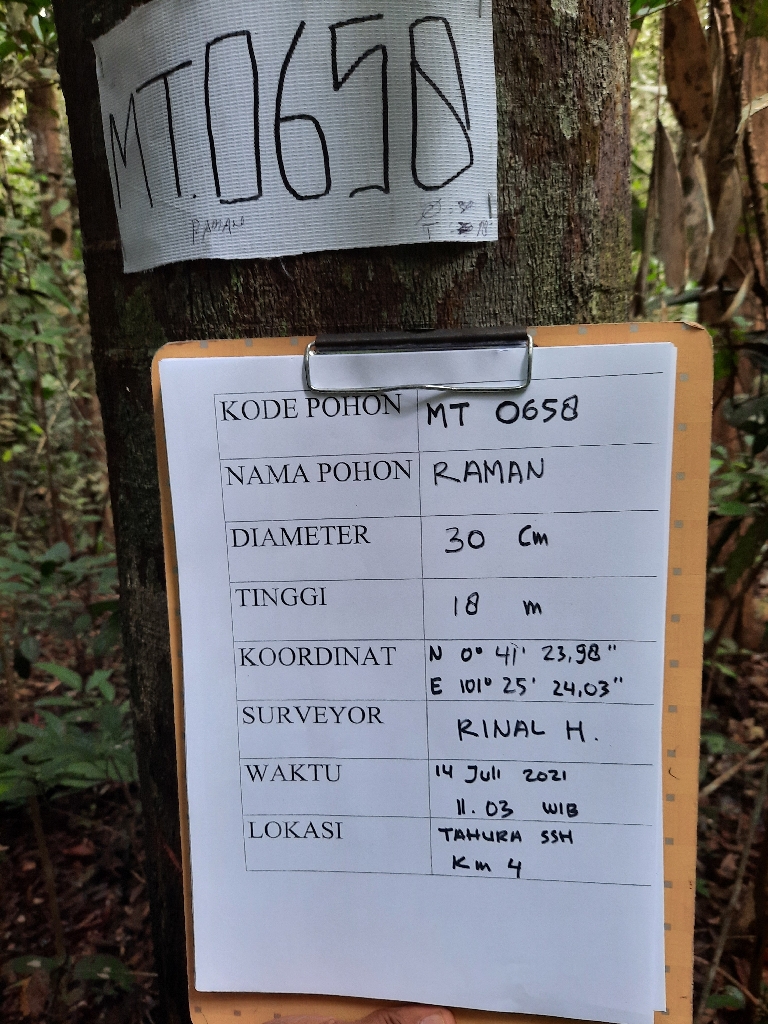 MT.0658
RAMAN
KODE POHON MT 0658
NAMA POHON RAMAN
DIAMETER 30 Cm
TINGGI 18 m
KOORDINAT N 0° 41' 23,98"
E 101° 25' 24,03"
SURVEYOR RINAL H.
WAKTU 14 Juli 2021
11.03 WIB
LOKASI TAHURA SSH
Km 4